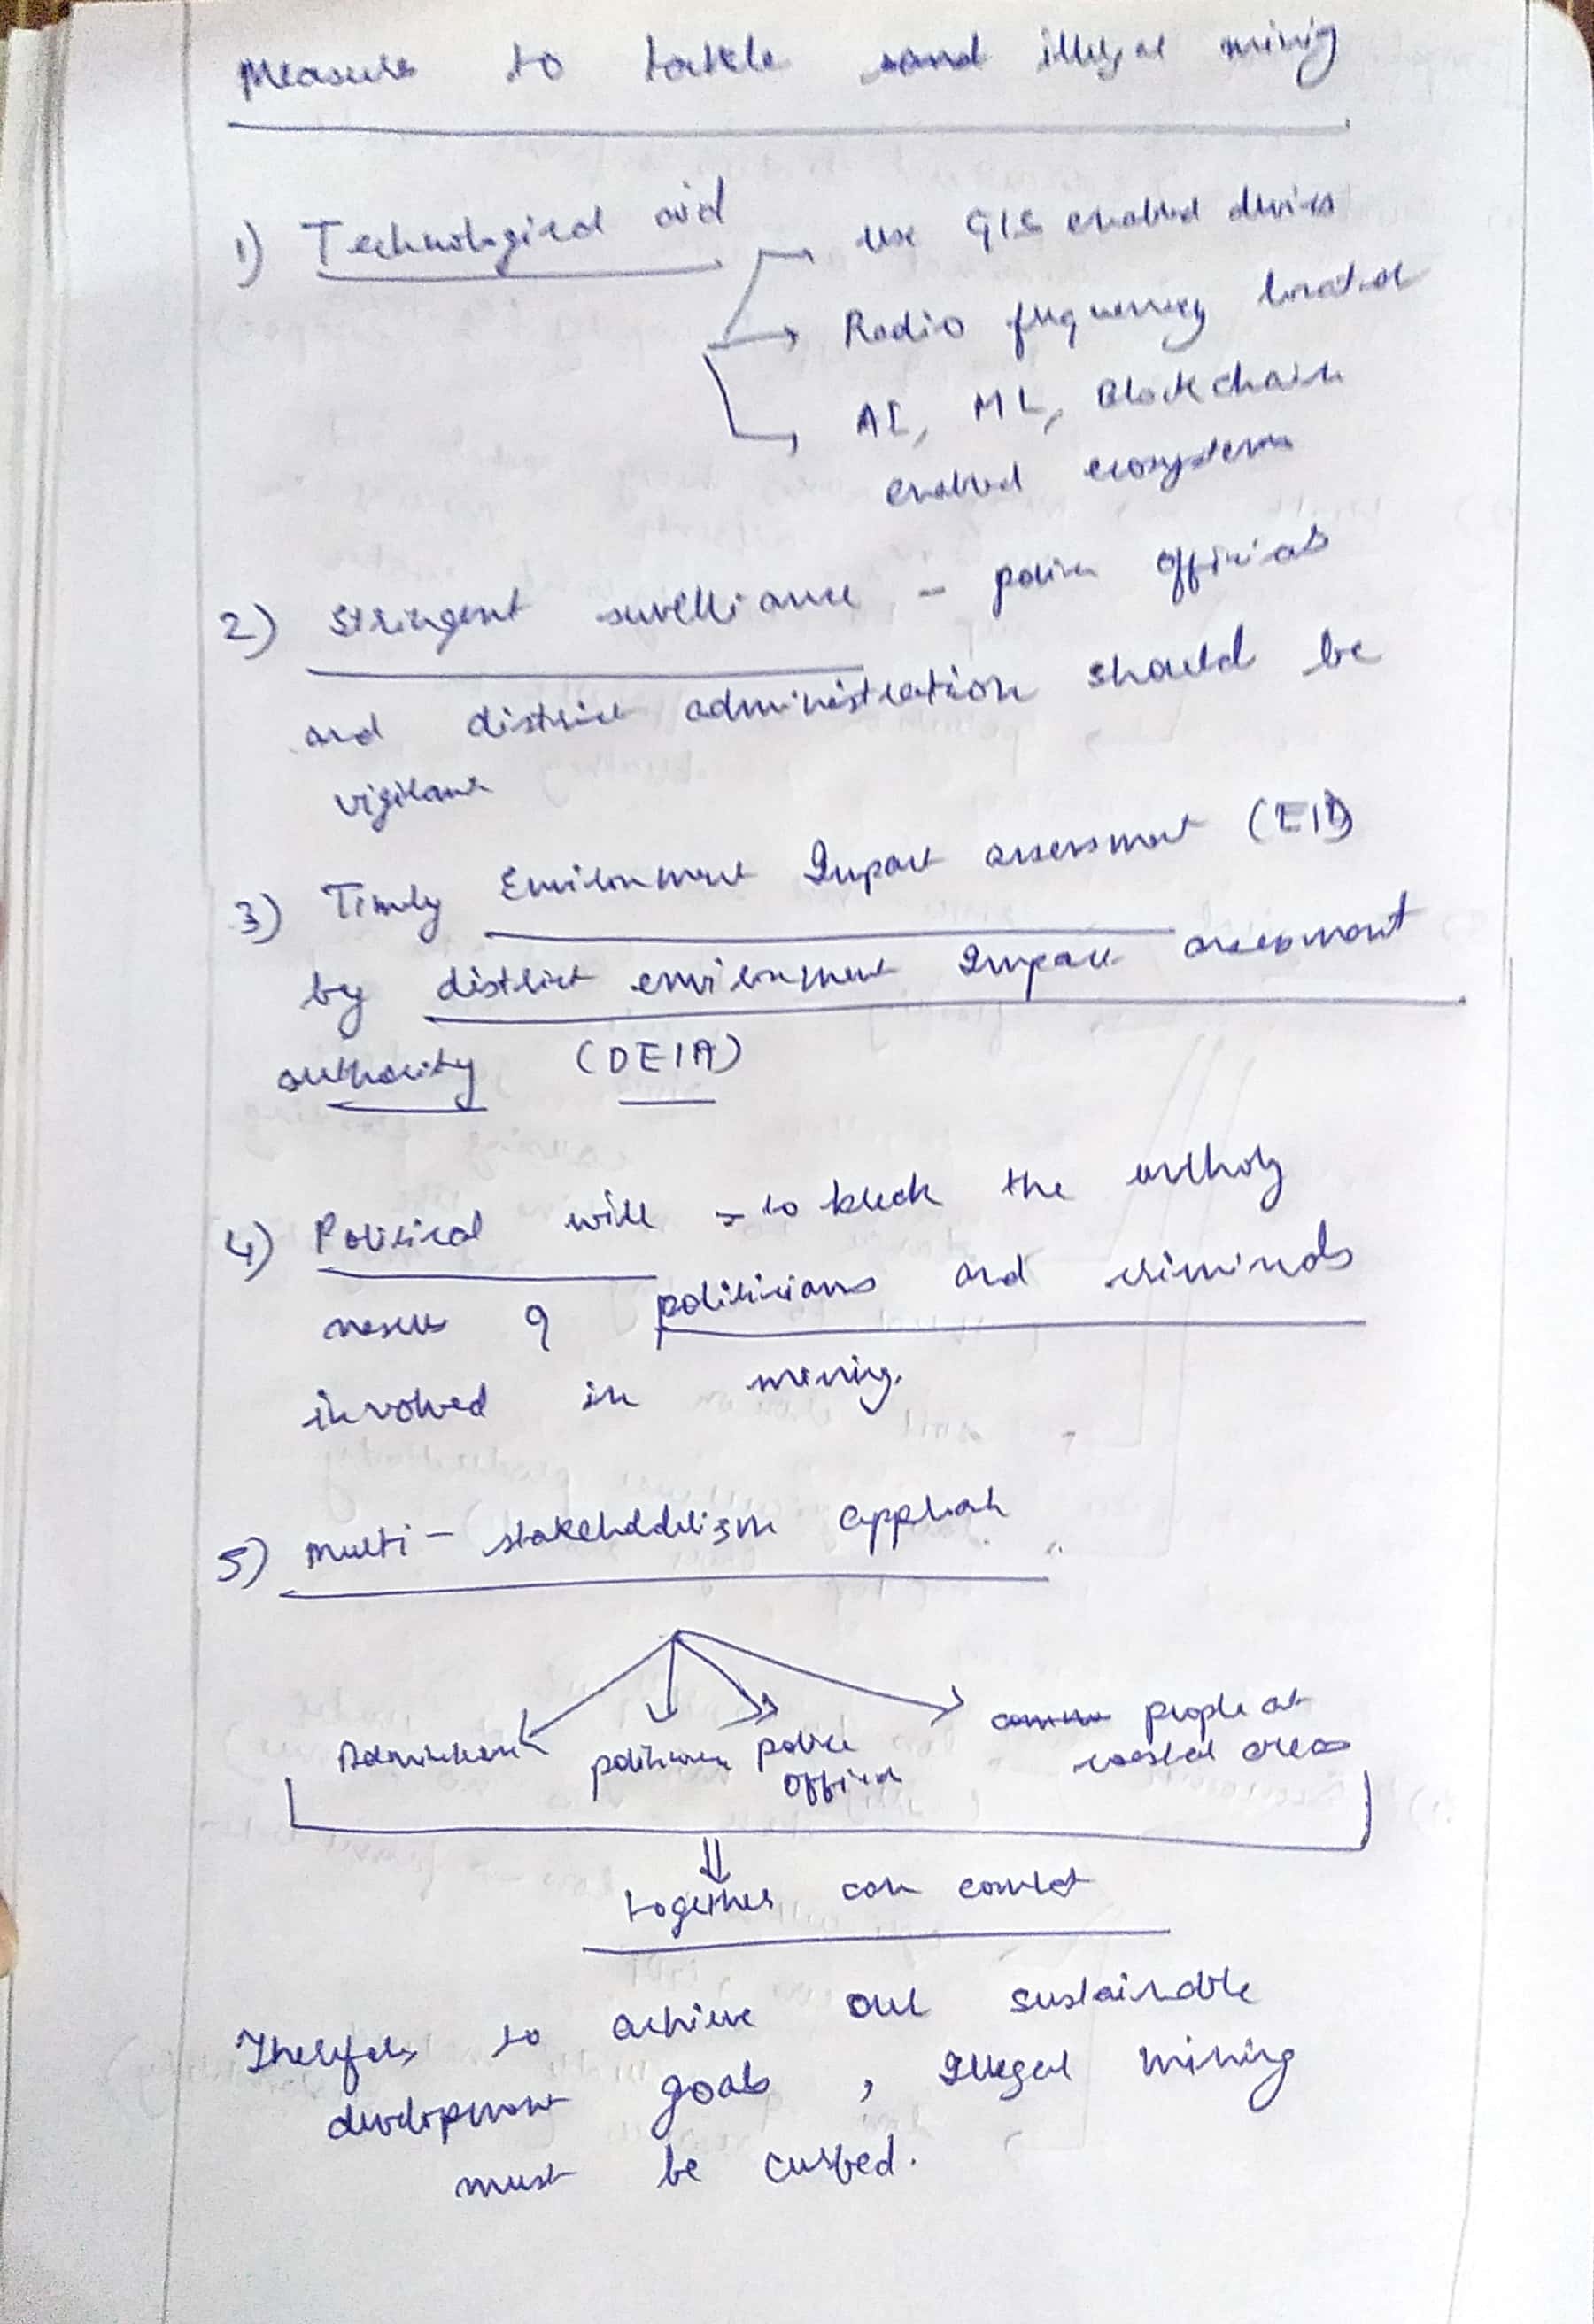 Measure to takle sand illegal minig
1) Technological aid
use GIS enabled devices
Radio frequency
AI, ML, Blockchain
enabled ecosystems
2) Stringent survelliance - police officials
and district administration should be
vigilant
3) Timely Environment Impact assessment (EIA)
by district environment Impact assessment
authority (DEIA)
4) Political will → to break the unholy
nexus of politicians and criminals
involved in mining.
5) Multi-stakeholderism approach
politician police
officer
people at
coastal areas
together can combat
Therefore, to achieve our sustainable
development goals, Illegal mining
must be curbed.